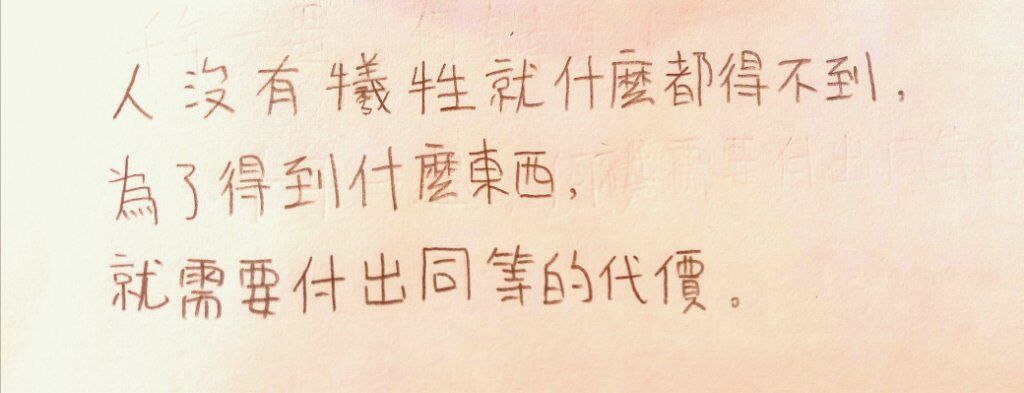 人沒有犧牲就什麼都得不到，
為了得到什麼東西，
就需要付出同等的代價。